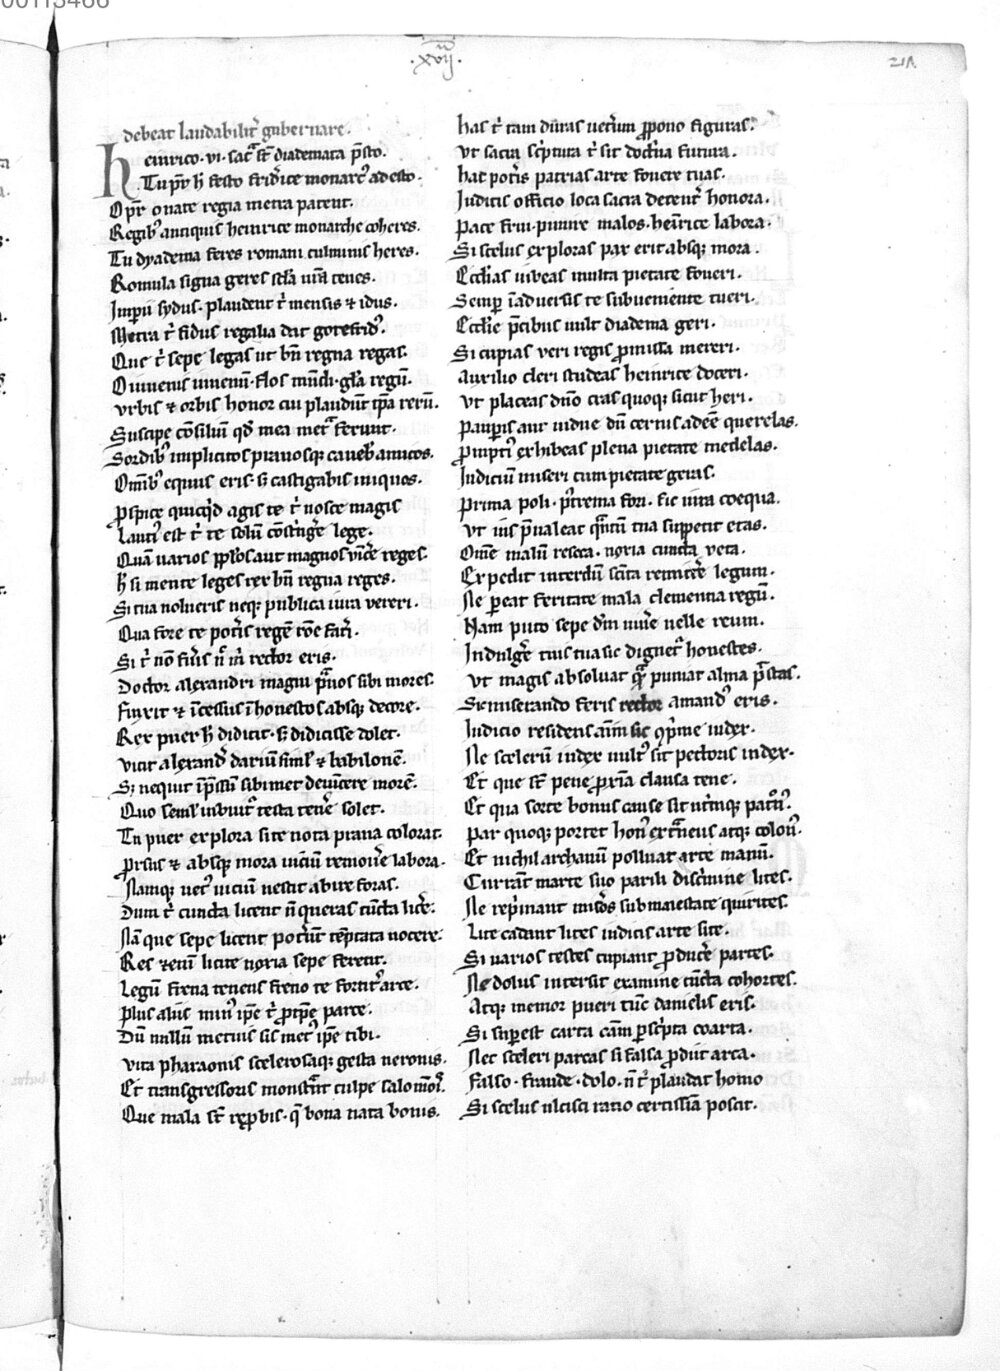 00113466
.xvij.
211
debeat laudabilit᷑ gubernare.
Heinrico.vi.sac᷑ st̄ diademata p̄sto.
Tu pr̄ h̄ festo frid'ice monarc' adesto.
O pr̄ o nate regia metra patent.
Regib' antiquis heinrice monarche coheres.
Tu dyadema feres romani culminis heres.
Romula signa geres scl̄a un̄a tenes.
Imp̄ii sydus. plaudent t̄ mensis ⁊ idus.
Metra t̄ fidus regalia dat gotefrid'.
Que t̄ sepe legas ut bn̄ regna regas.
O iuuenis iuuenū. flos mūdi. gl̄a regū.
Vrbis ⁊ orbis honor cui plaudūt tp̄a rerū.
Suscipe cōsiliū qd̄ mea met᷑ ferunt.
Sordib' implicitos prauosq; caueb' amicos.
Om̄ib' equus eris. si castigabis iniquos.
Prospice quicq'd agis te t̄ nosce magis
Lauti' est t̄ te solū cōst'nḡe lege.
Quā uarios pp̄los aut magnos uīce reges.
h̄ si mente leges rex bn̄ regna reges.
Si tua nolueris neq; publica iura uereri.
Qua fore te pot'is regē rōe fat'i.
Si t̄ nō fu'is n̄ m̄ rector eris.
Doctor alexandri magni p᷑uos sibi mores.
Finxit ⁊ īcessus īhonestos absq; decore.
Rex puer h̄ didicit. s; didicisse dolet.
Vicit alexand' dariū simĺ ⁊ babilonē.
S; nequit ip̄sū sibimet deuīcere morē.
Quo semĺ inbuit᷑ testa tenē solet.
Tu puer explora si te nota praua colorat.
Prorsus ⁊ absq; mora uiciū remoūe labora.
Namq; uet' uiciū nescit abire foras.
Dum t̄ cuncta licent n̄ queras cūcta licē.
Nā que sepe licent. pot'unt tēptata nocere.
Res eteni licite noxia sepe ferent.
Legū frena tenens freno te fortit᷑ arte.
Plus aliis min' ip̄e t̄ p̄cipe parce.
Dū nullū metuis sis met' ip̄e tibi.
Vita pharaonis scelerosaq; gesta neronis.
Et transgressoris monst᷑nt culpe salomōis.
Que mala st̄ rep̄bis. q̄ bona nata bonis.
has t̄ tam duras uetrum p̄pono figuras.
Vt sacra sc'ptura t̄ sit doct'na futura.
hac pot'is patrias arte fouere tuas.
Iudicis officio loca sacra decent᷑ honora.
Pace frui. punire malos. heīrice labora.
Si scelus exploras pax erit absq; mora.
Eccl'ias uiueas multa pietate foueri.
Semp̄ īaduersis te subueniente tueri.
Eccl'ie p̄cibus uult diadema geri.
Si cupias ueri regis p̄missa mereri.
Auxilio cleri studeas heinrice doceri.
Vt placeas dn̄o cras quoq; sicut heri.
Paup̄is aut uidue dū cernis adeē querelas.
Prompti' exhibeas plena pietate medelas.
Iudiciū miseri cum pietate geras.
Prima poli. p't'ema fori. sic iura coequa.
Vt ius p̄ualeat q᷑ntū tua suppetit etas.
Om̄e malū reseca. noxia cuncta ueta.
Expedit interdū sc'ita remitt̄e legum.
Ne pereat feritate mala clementia regū.
Nam puto sepe d'm uiūe uelle reum.
Indulgē tuis tua sic dignet᷑ honestes.
Vt magis absoluat q᷑ puniat alma p᷑stas.
Sic miserando feris rector amand' eris.
Iudicio residens aīm sic op'me iudex.
Ne scelerū index uult' sit pectoris index.
Et que st̄ pene prox'a clausa tene.
Et qua sorte bonus cause sit ut'mq; pat'n'.
Par quoq; portet hon' ext᷑neus atq; colon'.
Et nichil archanū polluat arte manū.
Currāt marte suo parili disc'mine lites.
Ne rep'mant mis'os sub maiestate quirites.
Lite cadant lites iudicis arte site.
Si uarios testes cupiant p̄ducē partes.
Ne dolus intersit examine cūcta cohortes.
Atq; memor pueri tūc danielis eris.
Si sup̄est carta cām p̄sc'pta coarta.
Nec sceleri parcas si falsa p̄diit arca.
Falso. fraude. dolo. n̄ t̄ plaudat homo
Si scelus ulcisci ratio certissīa poscit.